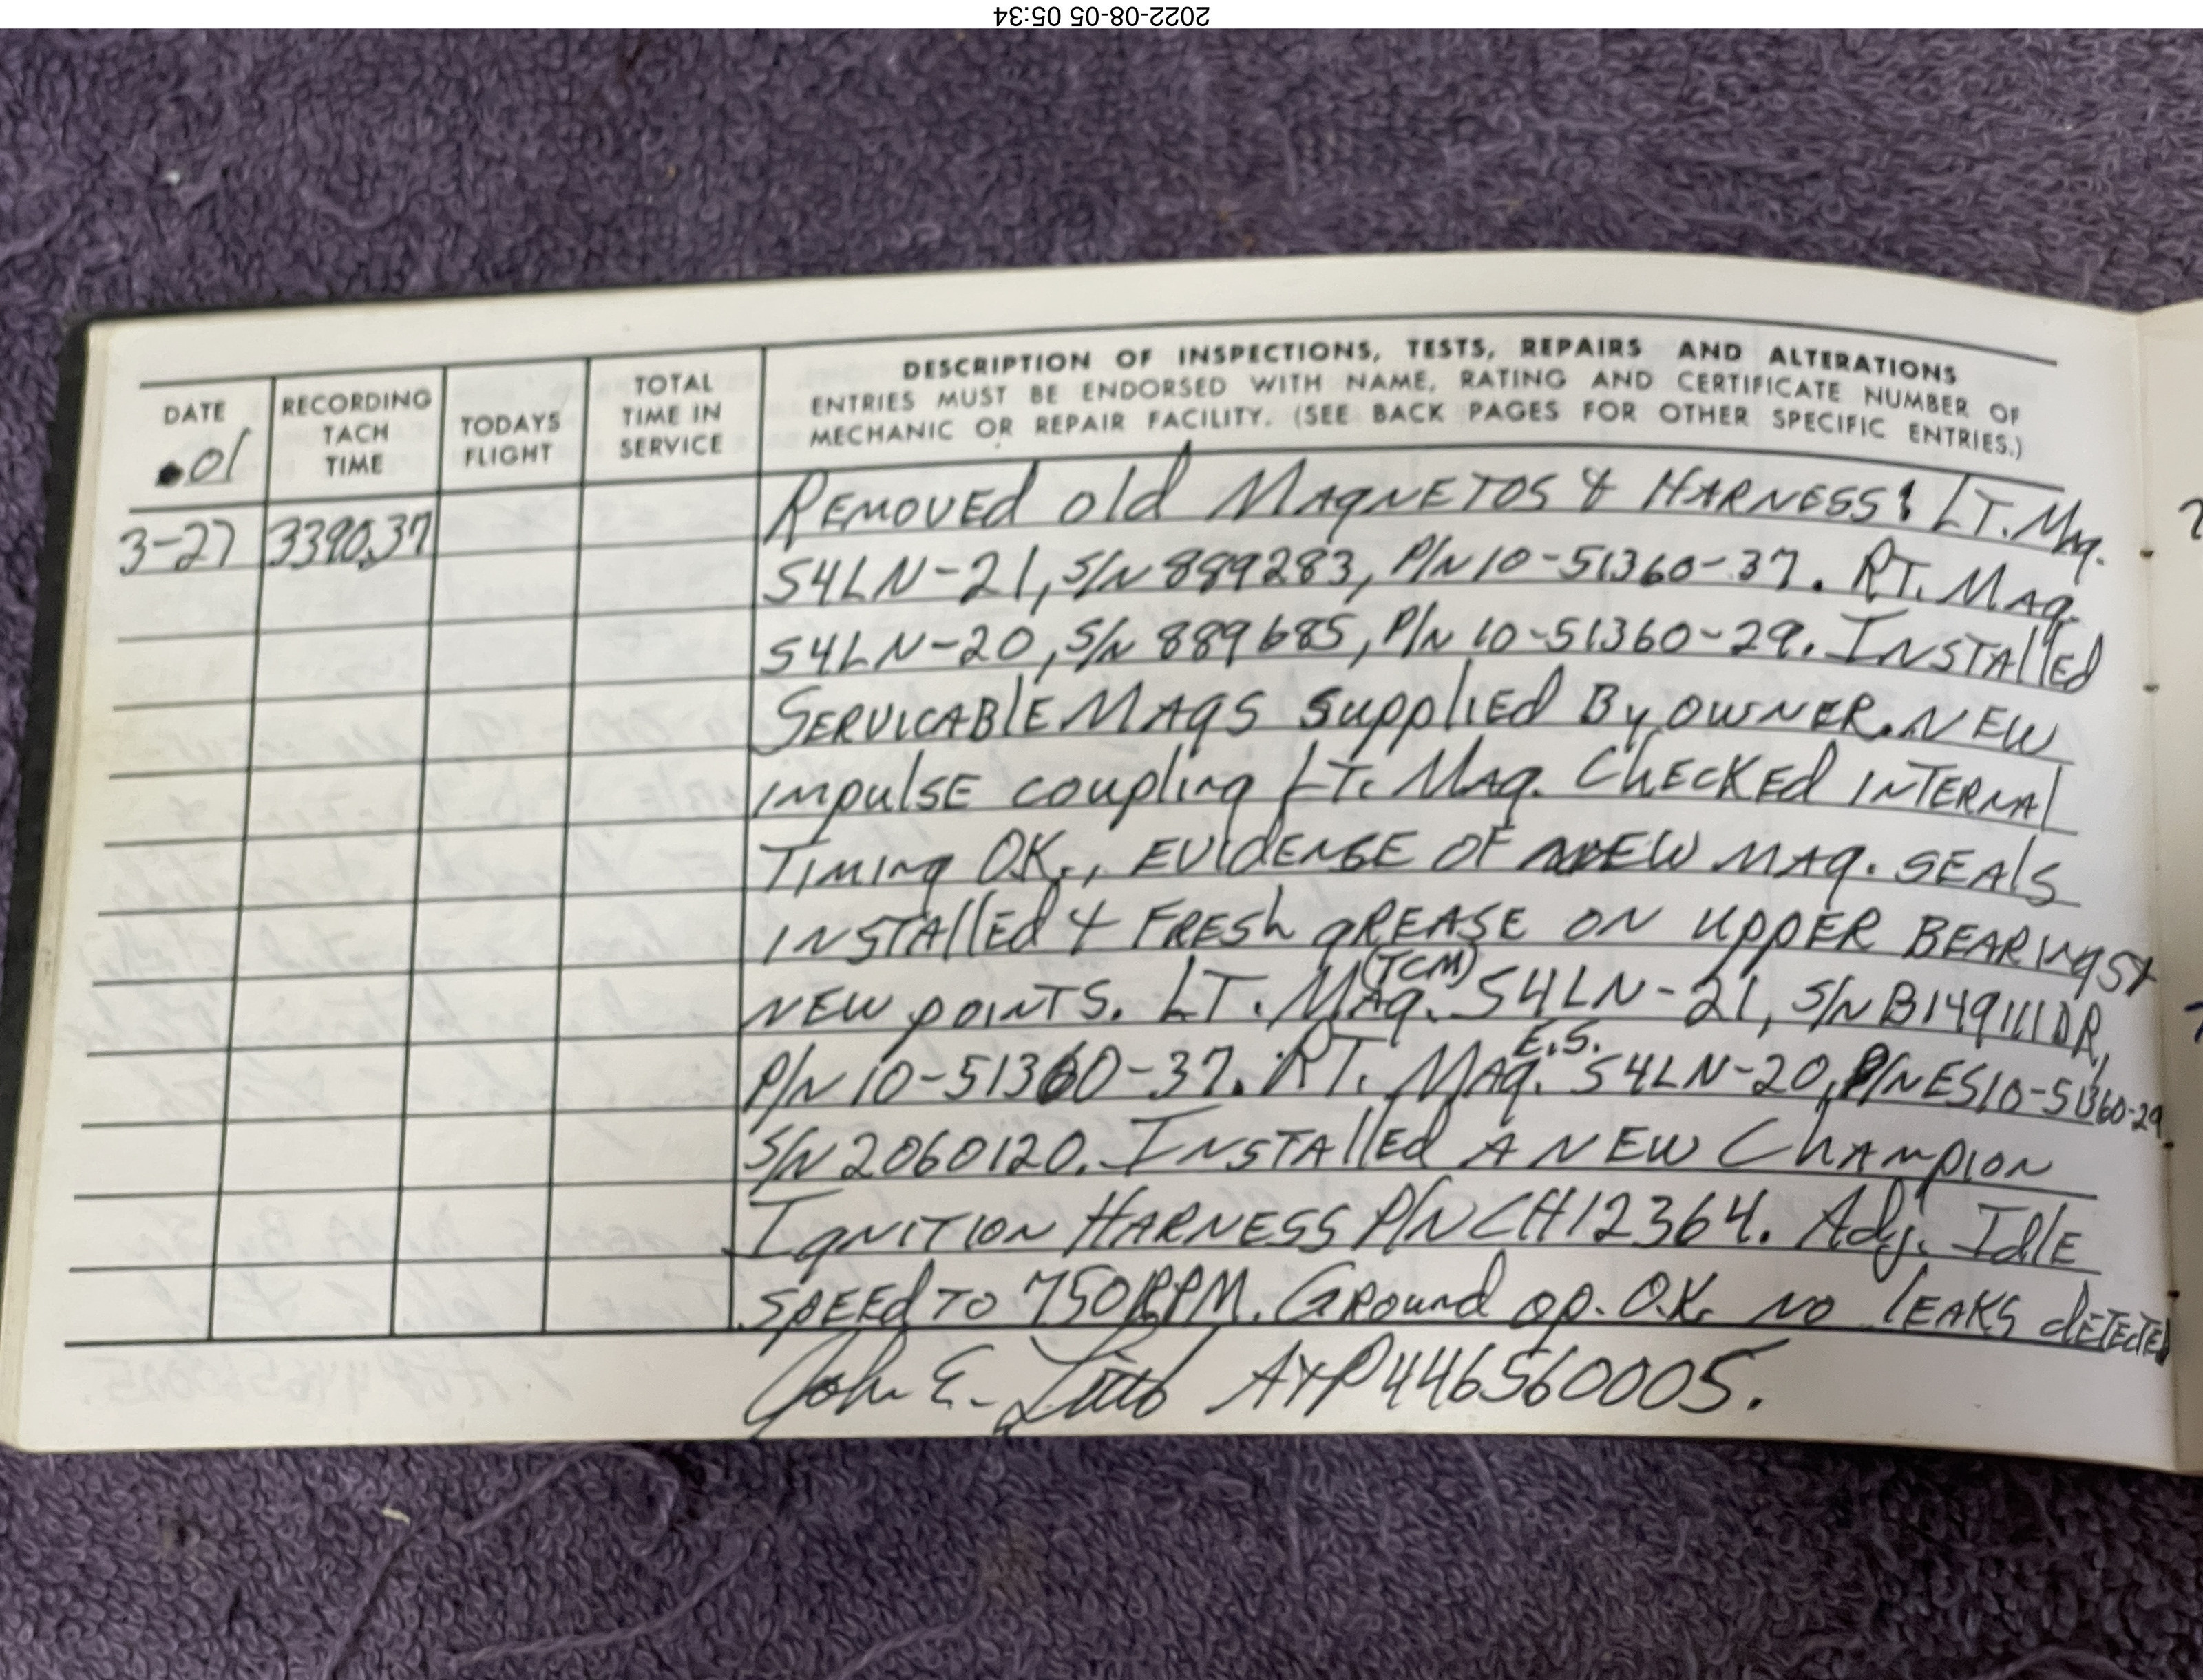 2022-08-05 05:34
DESCRIPTION OF INSPECTIONS, TESTS, REPAIRS AND ALTERATIONS
ENTRIES MUST BE ENDORSED WITH NAME, RATING AND CERTIFICATE NUMBER OF
MECHANIC OR REPAIR FACILITY. (SEE BACK PAGES FOR OTHER SPECIFIC ENTRIES.)
DATE
.01
RECORDING
TACH
TIME
TODAYS
FLIGHT
TOTAL
TIME IN
SERVICE
3-27 3390.37 REMOVED old MAgNETOS & HARNESS: LT. MAg.
S4LN-21, S/N 889283, P/N 10-51360-37. RT. MAg.
S4LN-20, S/N 889685, P/N 10-51360-29. INSTAllEd
SERVICABlE MAgS SupplIEd By OWNER. NEW
impulSE couplINg LT. MAg. ChECKEd INTERNAl
TIMINg OK., EVIdENSE OF NEW MAg. SEAlS
INSTAllEd & FRESh gREASE ON UppER BEARINgS &
NEW poINTS. LT. MAg. (TCM) S4LN-21, S/N B149111DR,
P/N 10-51360-37. RT. MAg. E.S. S4LN-20, P/N ES10-51360-29
S/N 2060120. INSTAllEd A NEW ChAmpION
IgNITION HARNESS P/N CH12364. Adj. IdlE
SpEEd TO 750 RPM. GRound op. O.K. NO lEAKS dETECTEd
John E. A&P 446560005.